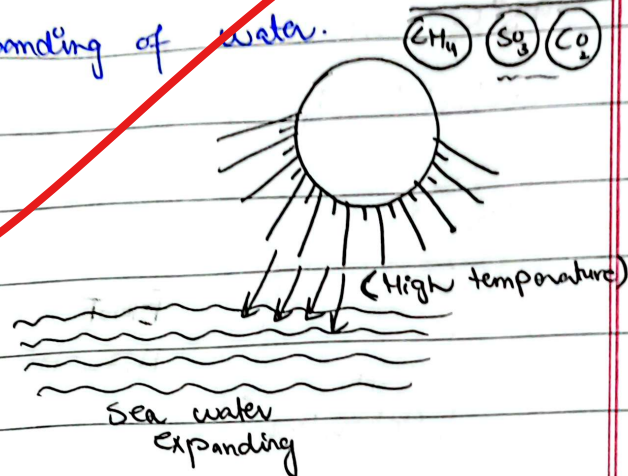 anding of water.
CH4 SO3 CO2
(High temperature)
Sea water
expanding